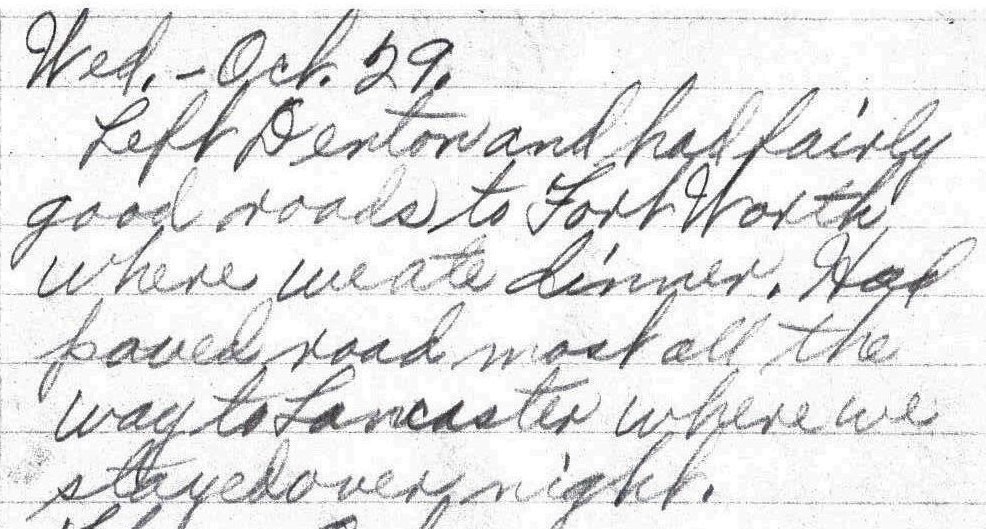 Wed. - Oct. 29.
Left Denton and had fairly
good roads to Fort Worth
where we ate dinner. Had
paved road most all the
way to Lancaster where we
stayed over night.